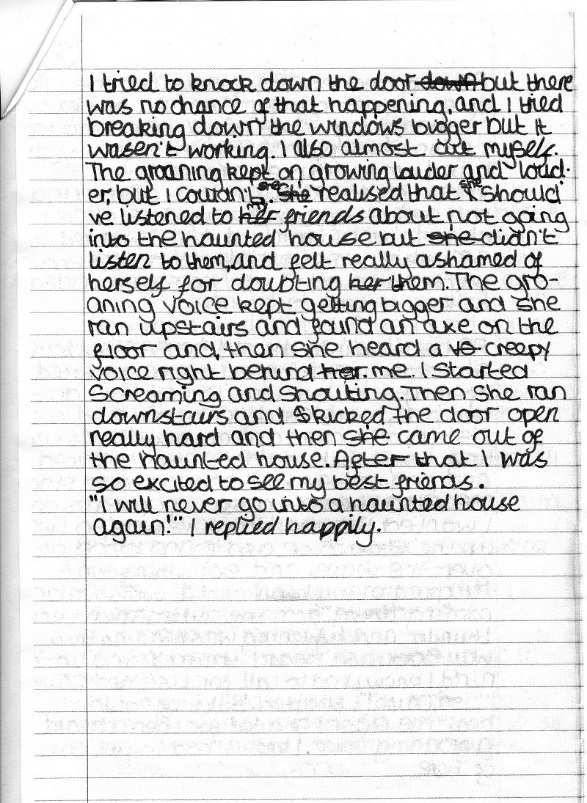 I tried to knock down the door down but there
was no chance of that happening, and I tried
breaking down the windows bigger but it
wasen't working. I also almost cut myself.
The groaning kept on growing louder and loud-
er, but I couldn't see. She realised that she should
've listened to her my friends about not going
into the haunted house but she didn't
listen to them, and felt really ashamed of
herself for doubting her them. The gro-
aning voice kept getting bigger and she
ran upstairs and found an axe on the
floor and, then she heard a vo creepy
voice right behind her me. I started
screaming and shouting. Then she ran
downstairs and kicked the door open
really hard and then she came out of
the haunted house. After that I was
so excited to see my best friends.
"I will never go into a haunted house
again!" I replied happily.